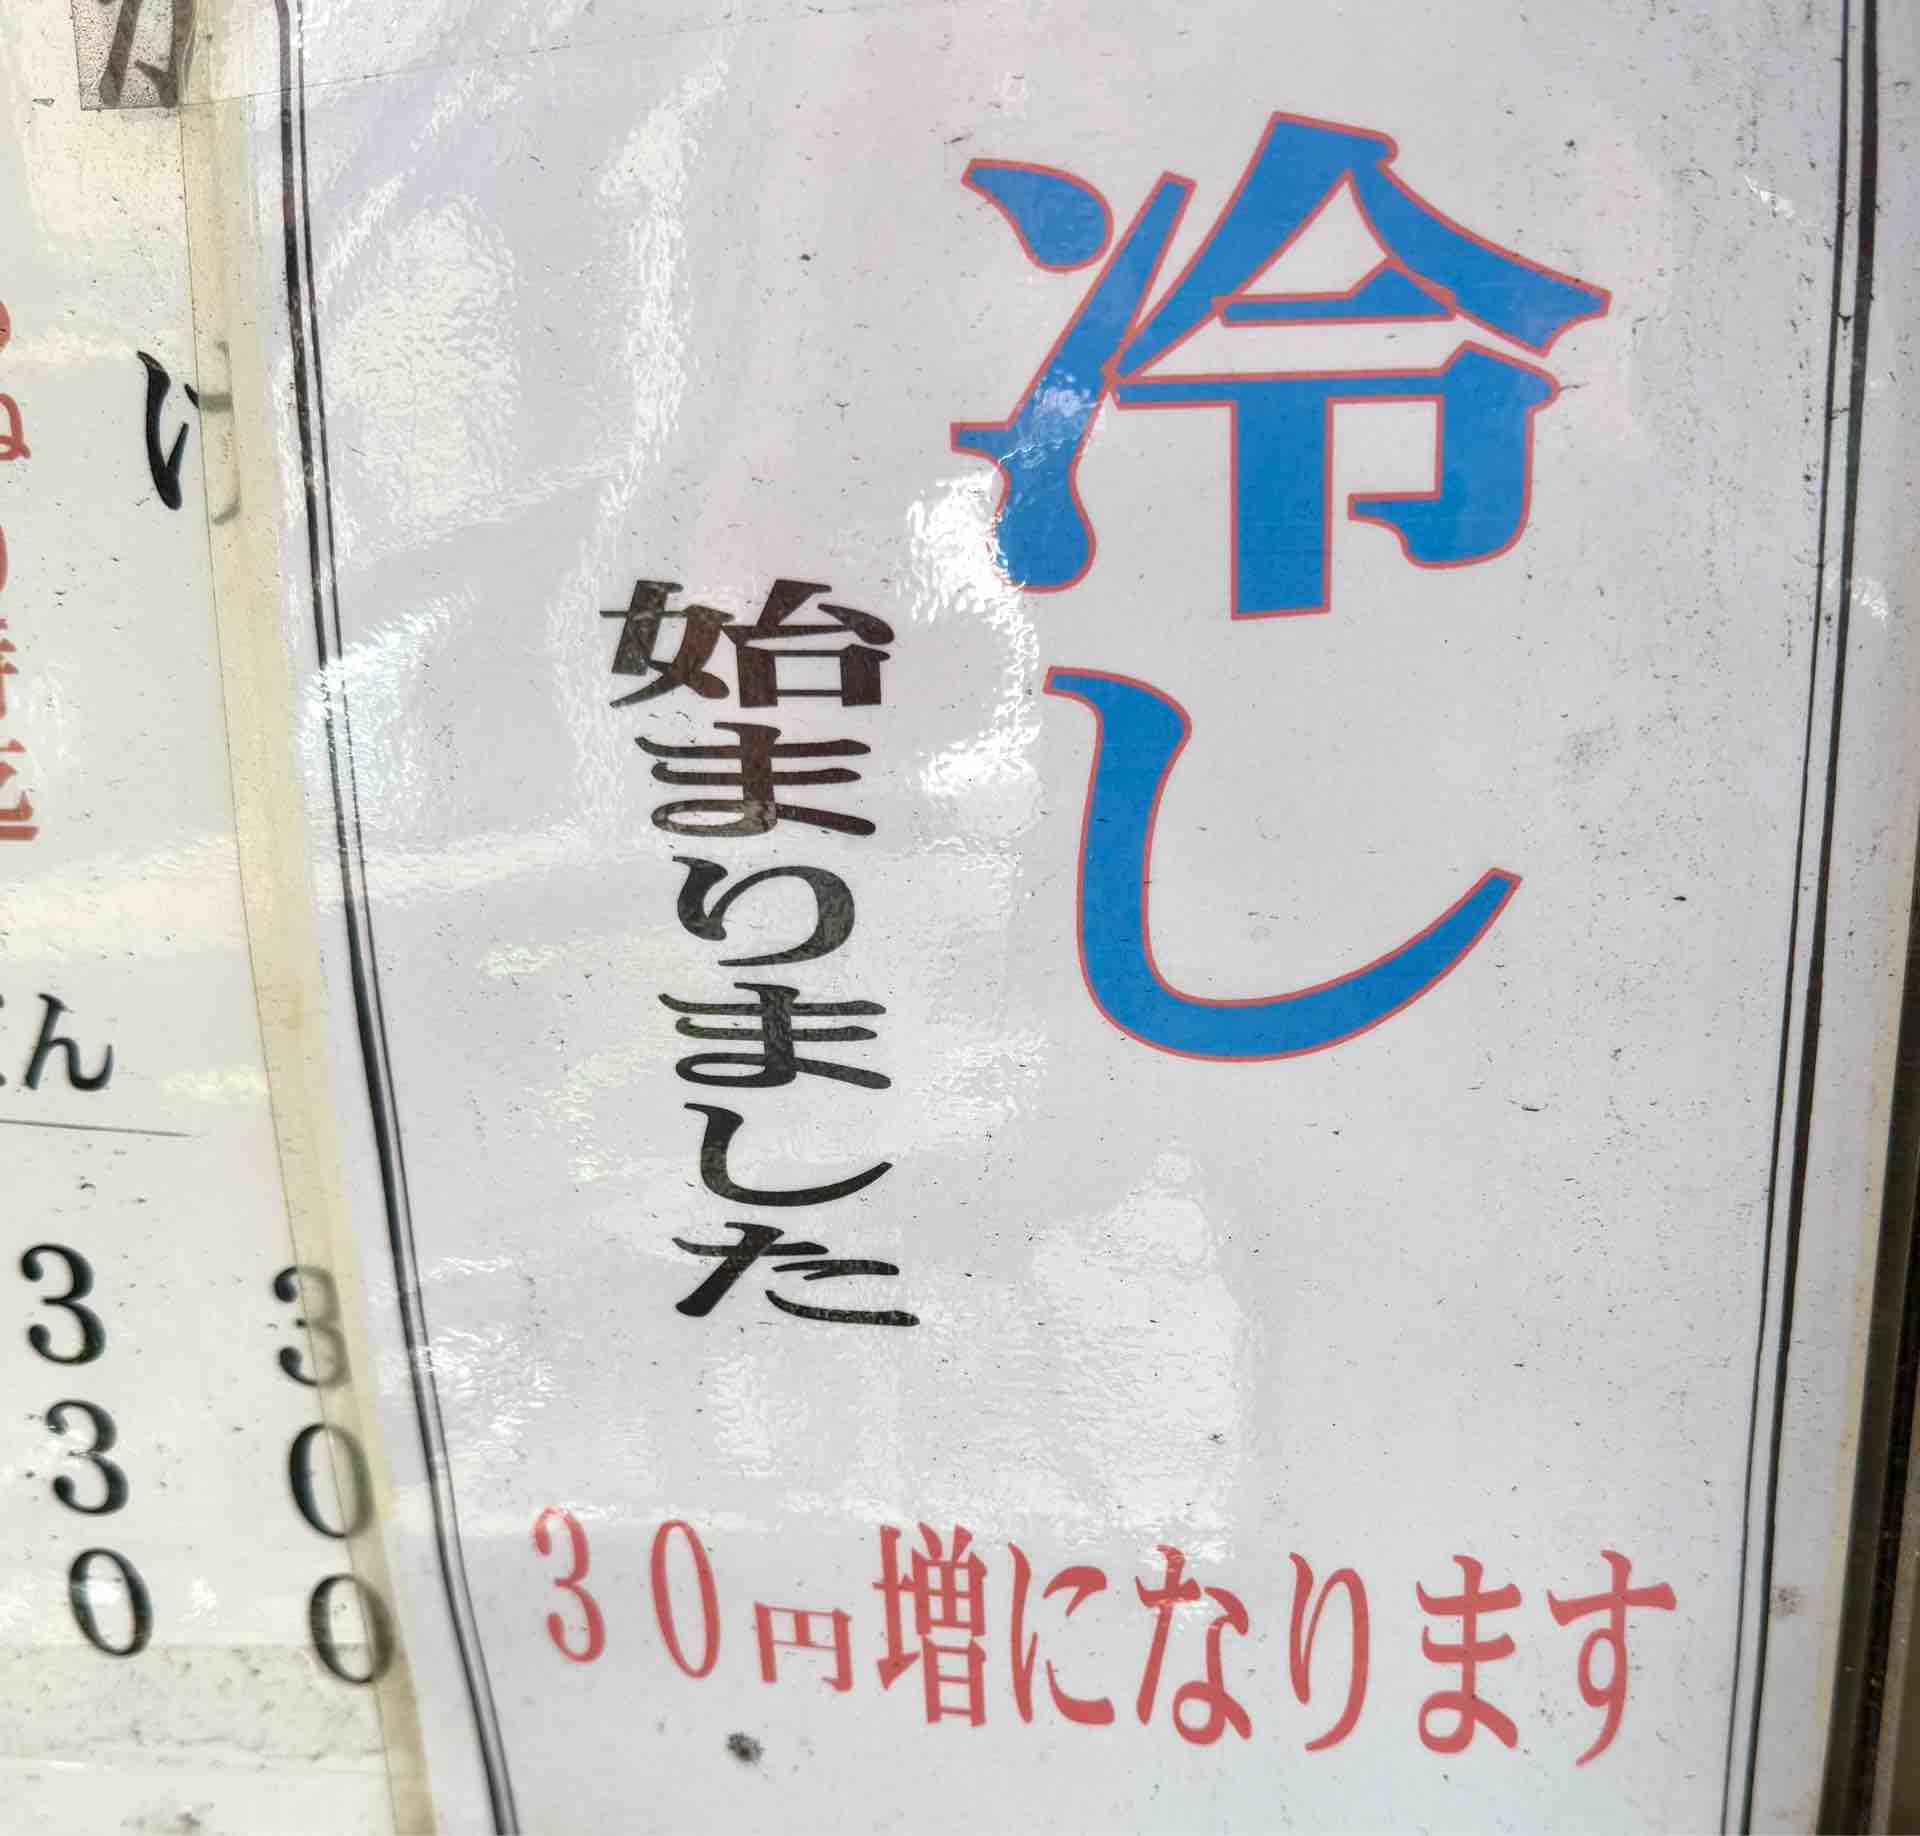 冷し
始まりました
30円増になります
け
ん
300
330